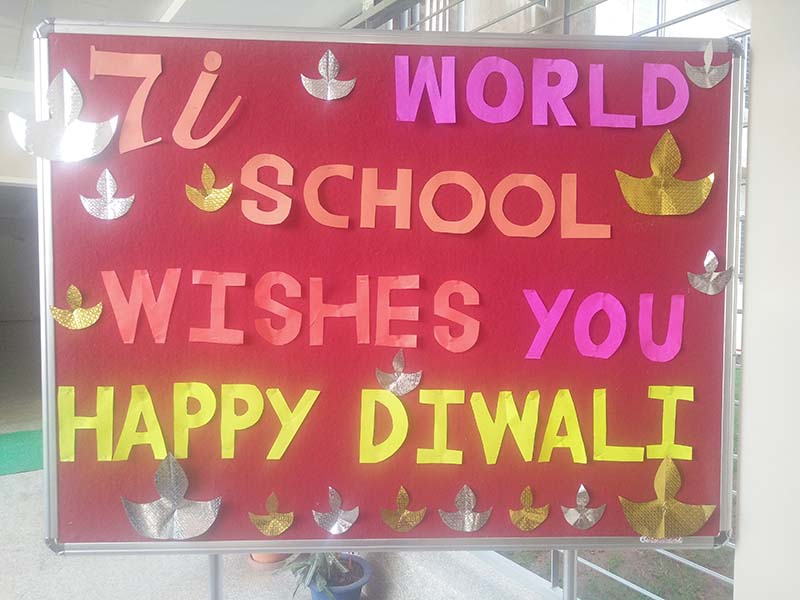 7i WORLD
SCHOOL
WISHES YOU
HAPPY DIWALI